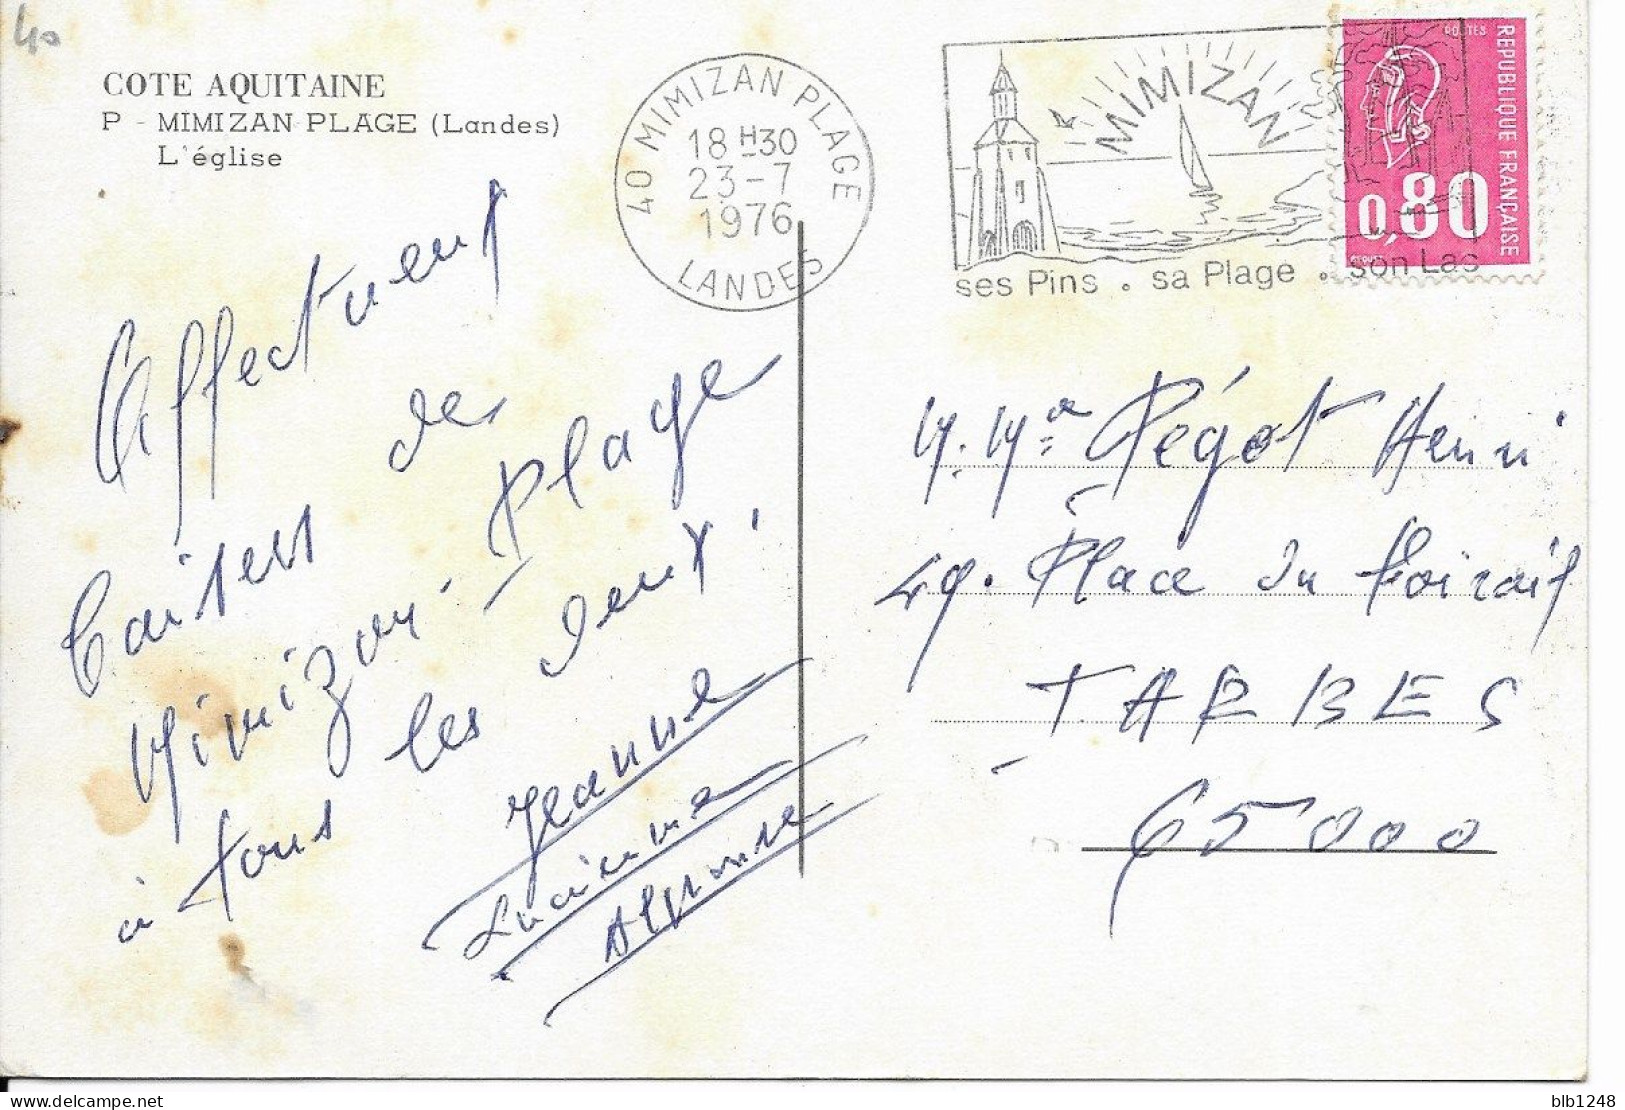 40
COTE AQUITAINE
P - MIMIZAN PLAGE (Landes)
L'église
40 MIMIZAN PLAGE
18 H 30
23-7
1976
LANDES
MIMIZAN
ses Pins . sa Plage . son Lac
POSTES
REPUBLIQUE FRANÇAISE
0,80
Affectueux
baisers de
Mimizan-plage
à tous les deux.
Jeanne
Lucienne
Alphonse
M. Mme Pégot Henri
49. Place du Foirail
TARBES
65000
blb1248